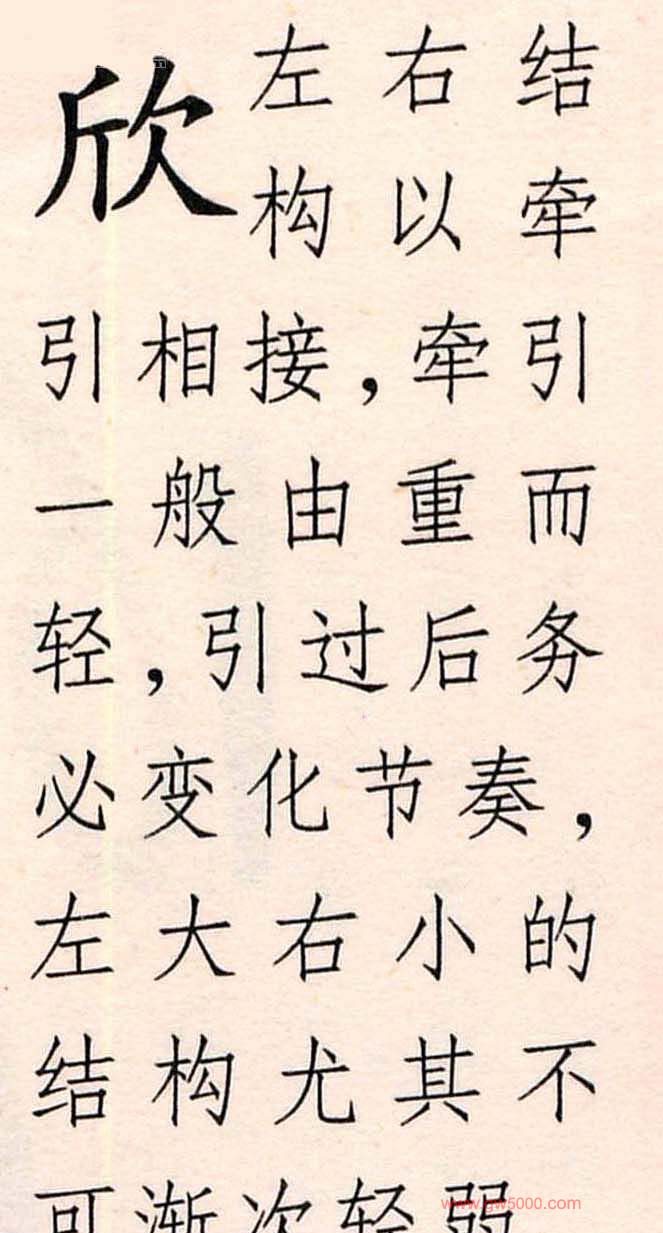 欣
左右结
构以牵
引相接，牵引
一般由重而
轻，引过后务
必变化节奏，
左大右小的
结构尤其不
可渐次轻弱
www.gw5000.com